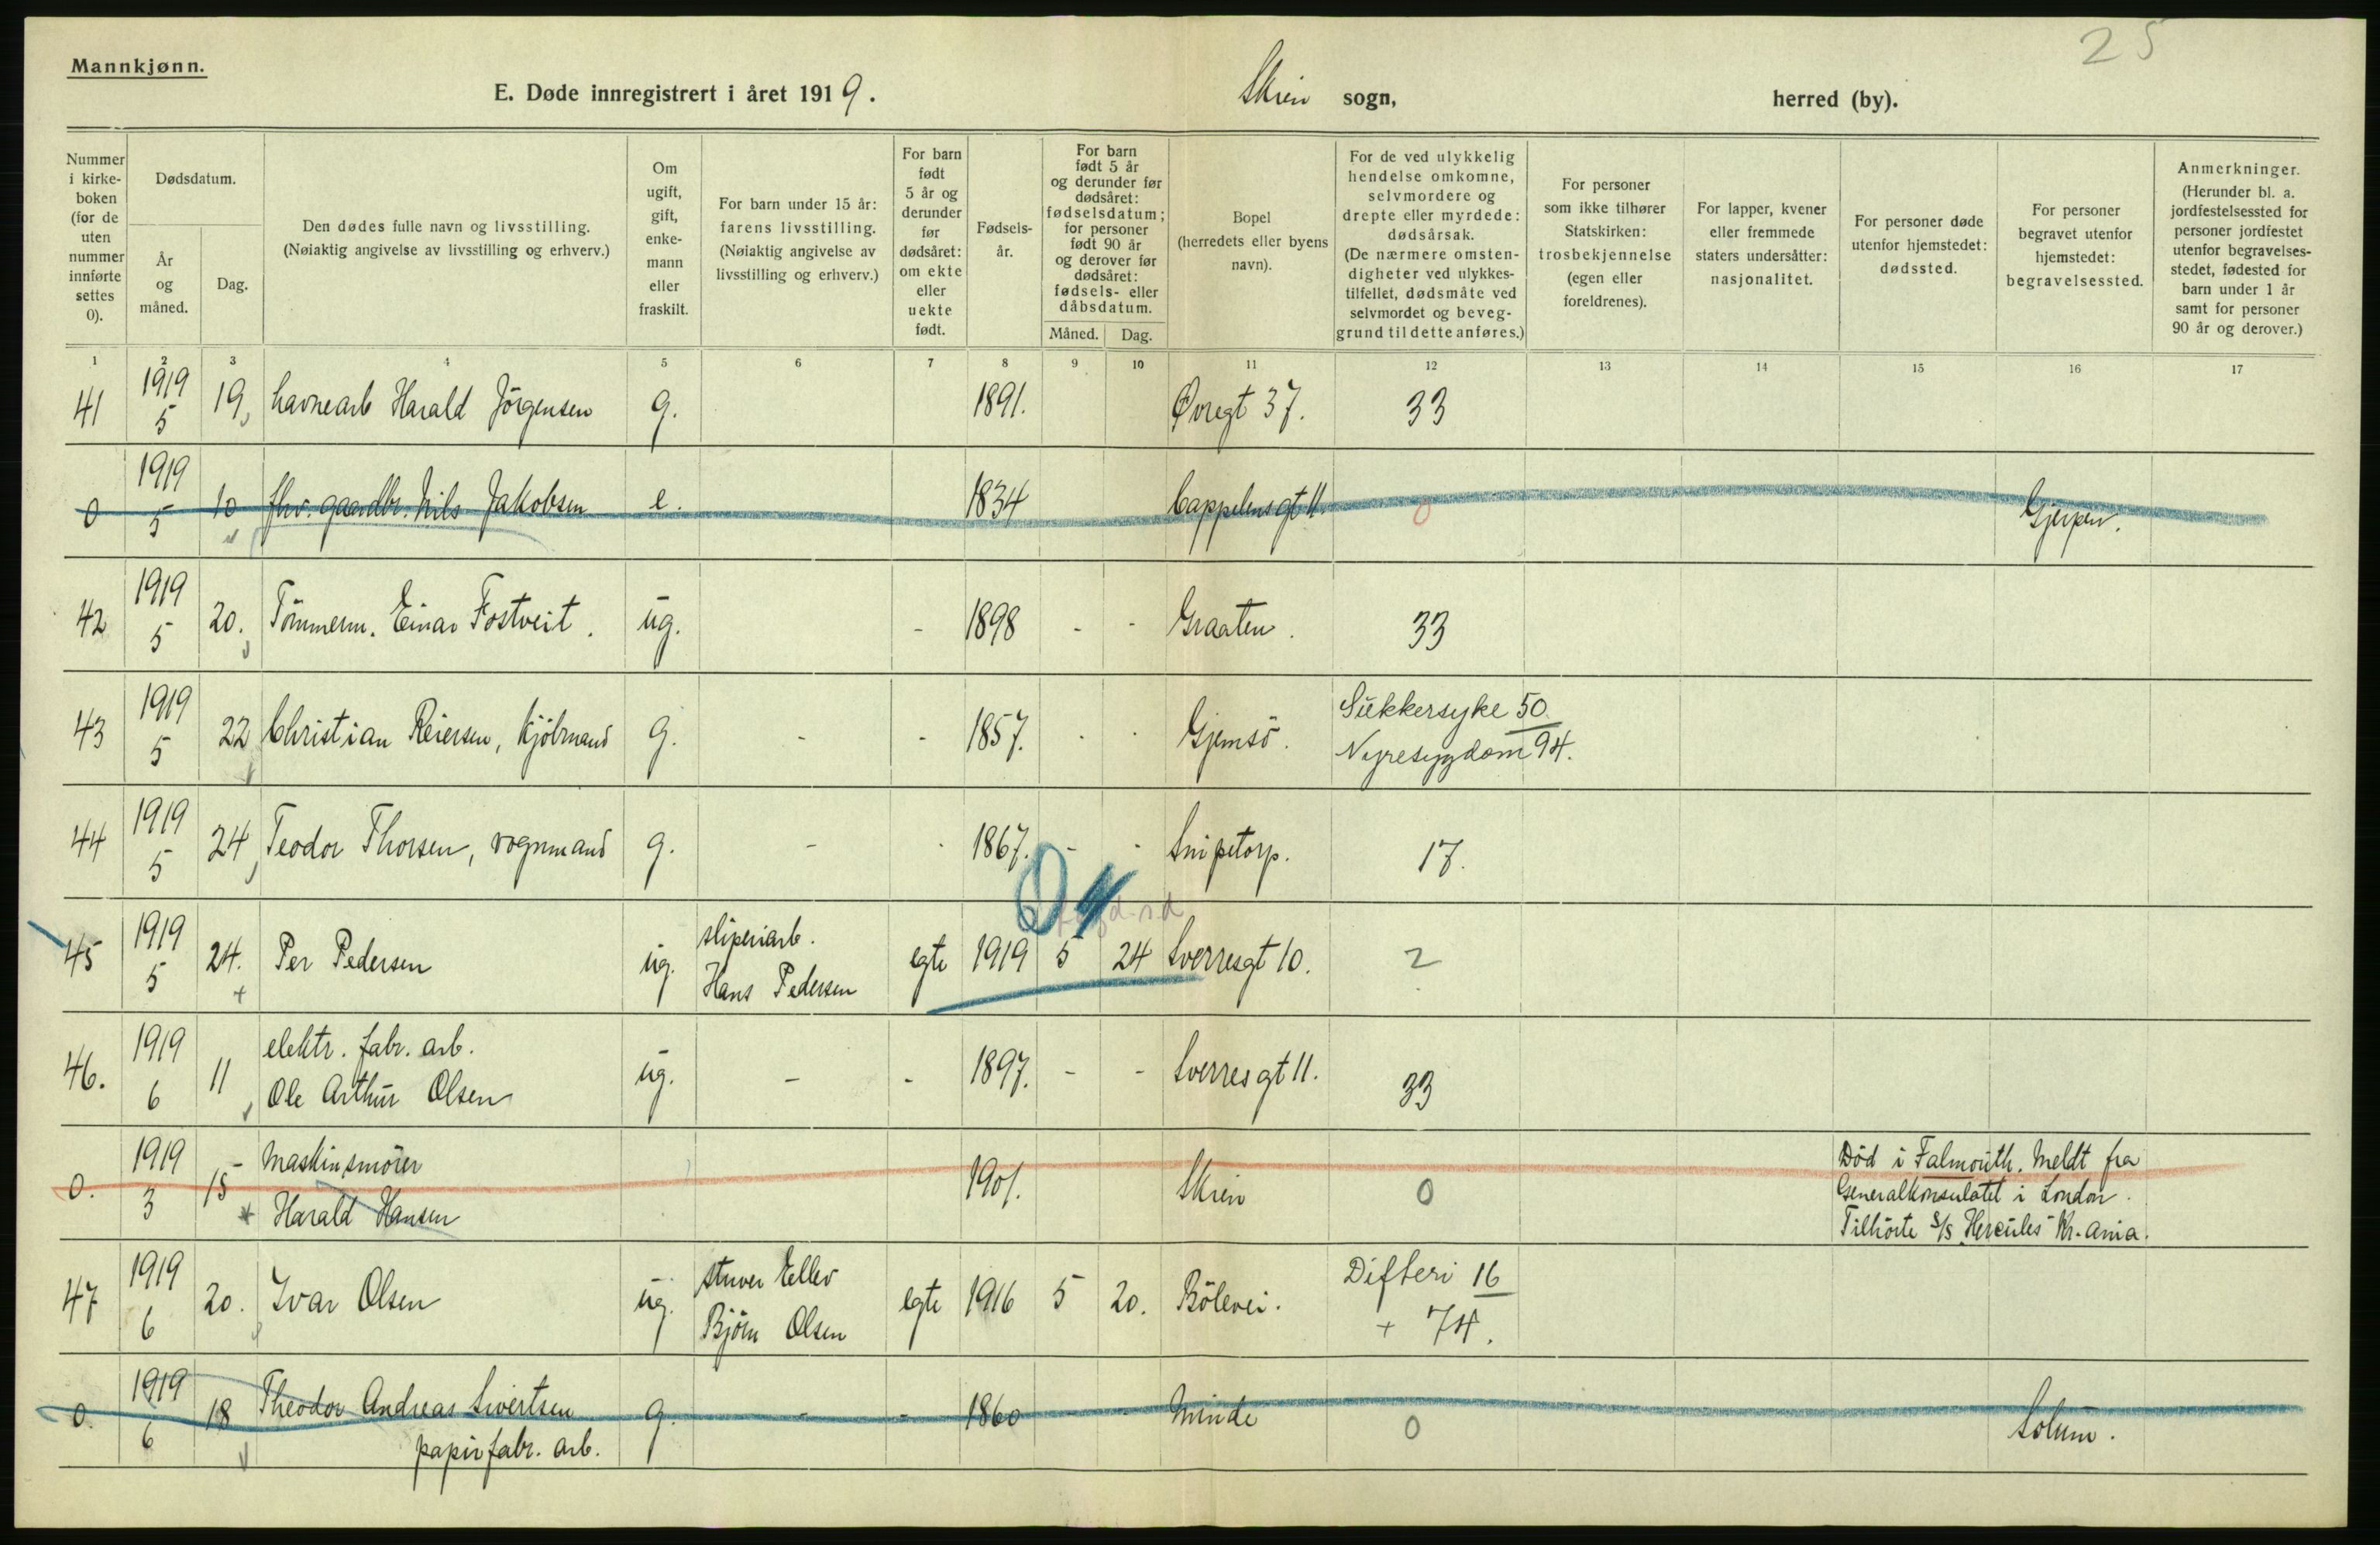 25
Mannkjønn.
E. Døde innregistrert i året 1919. Skien sogn, herred (by).
Nummer i kirke- boken (for de uten nummer innførte settes 0).
Dødsdatum.
År og måned.
Dag.
Den dødes fulle navn og livsstilling. (Nøiaktig angivelse av livsstilling og erhverv.)
Om ugift, gift, enke- mann eller fraskilt.
For barn under 15 år: farens livsstilling. (Nøiaktig angivelse av livsstilling og erhverv.)
For barn født 5 år og derunder før dødsåret: om ekte eller uekte født.
Fødsels- år.
For barn født 5 år og derunder før dødsåret: fødselsdatum; for personer født 90 år og derover før dødsåret: fødsels- eller dåbsdatum.
Måned. Dag.
Bopel (herredets eller byens navn).
For de ved ulykkelig hendelse omkomne, selvmordere og drepte eller myrdede: dødsårsak. (De nærmere omsten- digheter ved ulykkes- tilfellet, dødsmåte ved selvmordet og beveg- grund til dette anføres.)
For personer som ikke tilhører Statskirken: trosbekjennelse (egen eller foreldrenes).
For lapper, kvener eller fremmede staters undersåtter: nasjonalitet.
For personer døde utenfor hjemstedet: dødssted.
For personer begravet utenfor hjemstedet: begravelsessted.
Anmerkninger. (Herunder bl. a. jordfestelsessted for personer jordfestet utenfor begravelses- stedet, fødested for barn under 1 år samt for personer 90 år og derover.)
1 2 3 4 5 6 7 8 9 10 11 12 13 14 15 16 17
41 1919 5 19, havnearb Harald Jörgensen g. 1891. Øvregt 37. 33
0 1919 5 10 fhv. gaardbr. Nils Jakobsen e. 1834 Cappelensgt 11. 0 Gjerpen.
42 1919 5 20. Tömmerm. Einar Fostveit. ug. - 1898 - - Graaten. 33
43 1919 5 22 Christian Reiersen, kjöbmand g. - - 1857. - - Gjemsö. Sukkersyke 50.
Nyresygdom 94.
44 1919 5 24 Teodor Thorsen, vognmand g. - - 1867. - - Snipetorp. 17.
45 1919 5 24. Per Pedersen ug. sliperiarb.
Hans Pedersen egte 1919 5 24 Sverresgt 10. 2
46. 1919 6 11 elektr. fabr. arb.
Ole Arthur Olsen ug. - - 1897. - - Sverresgt 11. 33
0. 1919 3 15 Maskinsmörer
Harald Hansen 1901. Skien 0 Död i Falmouth. Meldt fra
Generalkonsulatet i London.
Tilhörte S/S Hercules Kr.ania.
47 1919 6 20. Ivar Olsen ug. stuver Ellev
Bjöin Olsen egte 1916 5 20. Bölevei. Difteri 16
+ 74.
0. 1919 6 18 Theodor Andreas Sivertsen
papirfabr. arb. g. - - 1860 - - Minde 0 Solum.